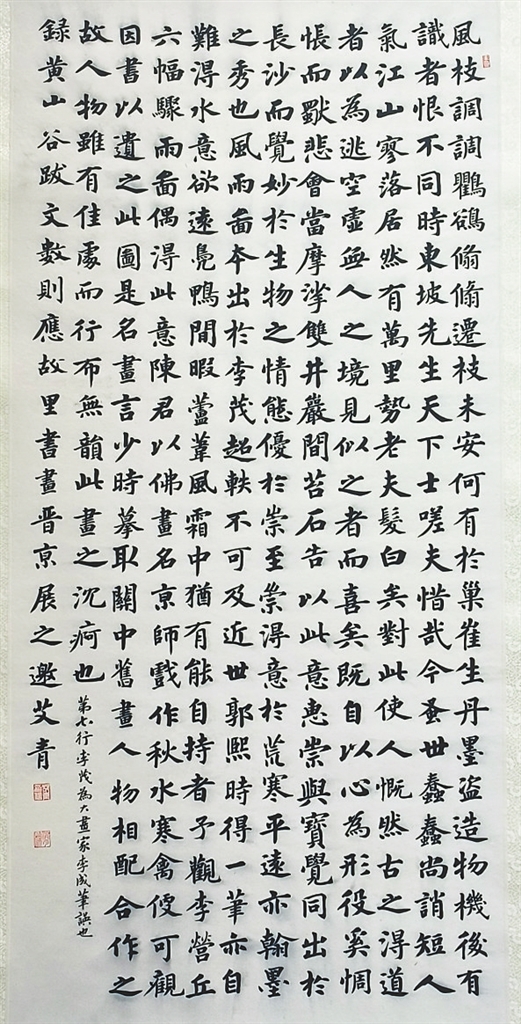 風枝調調鸜鵒翛翛遷枝未安何有於巢崔生丹墨盜造物機後有
識者恨不同時東坡先生天下士嗟夫惜哉今蚤世蠢蠢尚誚短人
氣江山寥落居然有萬里勢老夫髮白矣對此使人慨然古之得道
者以為逃空虛無人之境見似之者而喜矣既自以心為形役奚惆
悵而獸悲會當摩挲雙井巖間苔石告以此意惠崇與寶覺同出於
長沙而覺妙於生物之情態優於崇至崇得意於荒寒平遠亦翰墨
之秀也風雨啚本出於李茂超軼不可及近世郭熙時得一筆亦自
難得水意欲遠鳧鴨閒暇蘆葦風霜中猶有能自持者予觀李營丘
六幅驟雨啚偶得此意陳君以佛畫名京師戲作秋水寒禽便可觀
因書以遺之此圖是名畫言少時摹取關中舊畫人物相配合作之
故人物雖有佳處而行布無韻此畫之沉痾也
第七行李茂為大畫家李成筆誤也
録黄山谷跋文數則應故里書畫晋京展之邀艾青